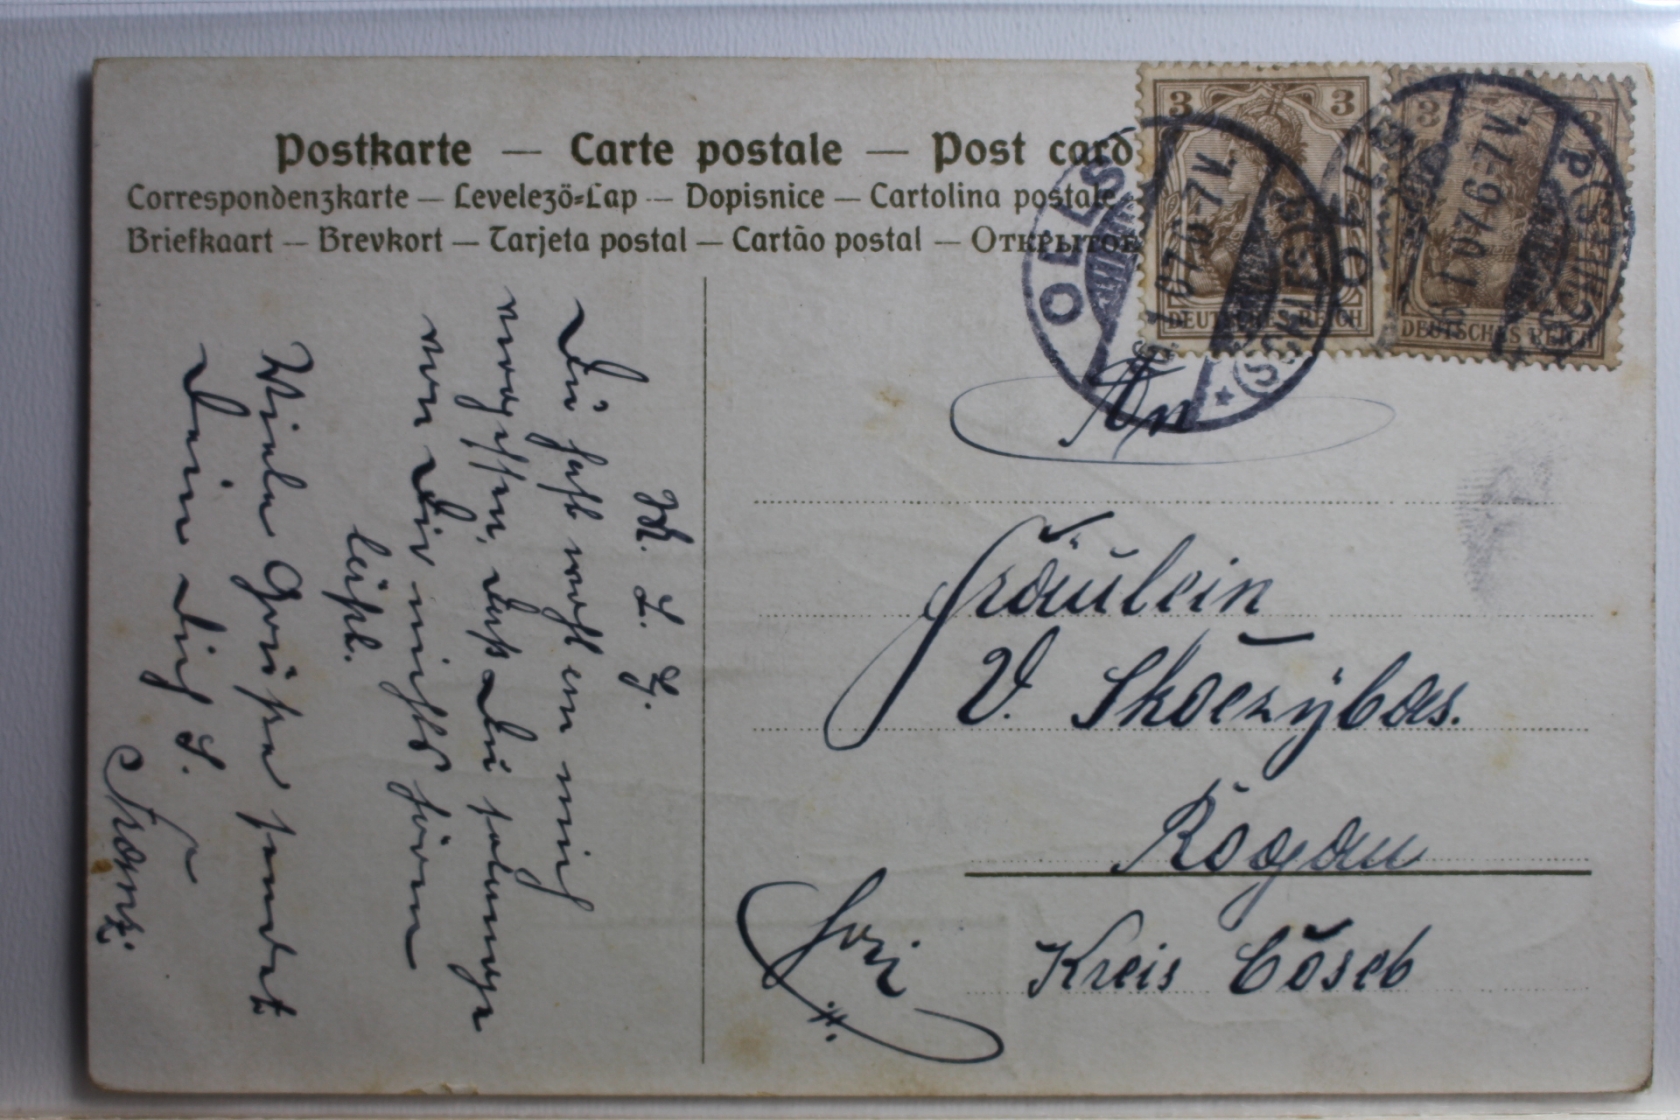 Postkarte — Carte postale — Post card
Correspondenzkarte — Levelező-Lap — Dopisnice — Cartolina postale
Briefkaart — Brevkort — Tarjeta postal — Cartão postal — Открытое
3 3
DEUTSCHES REICH
3
DEUTSCHES REICH
OELS
(SCHLES)
07. 6-7 V.
07. 6-7 V.
An
Fräulein
V.
Rogau
Kreis Cosel
M. L. F.
Du hast wohl an mich
vergessen, dass Du solange
von Dir nichts hören
läßt.
Viele Grüße sendet
Dein Dich l.
Franz.